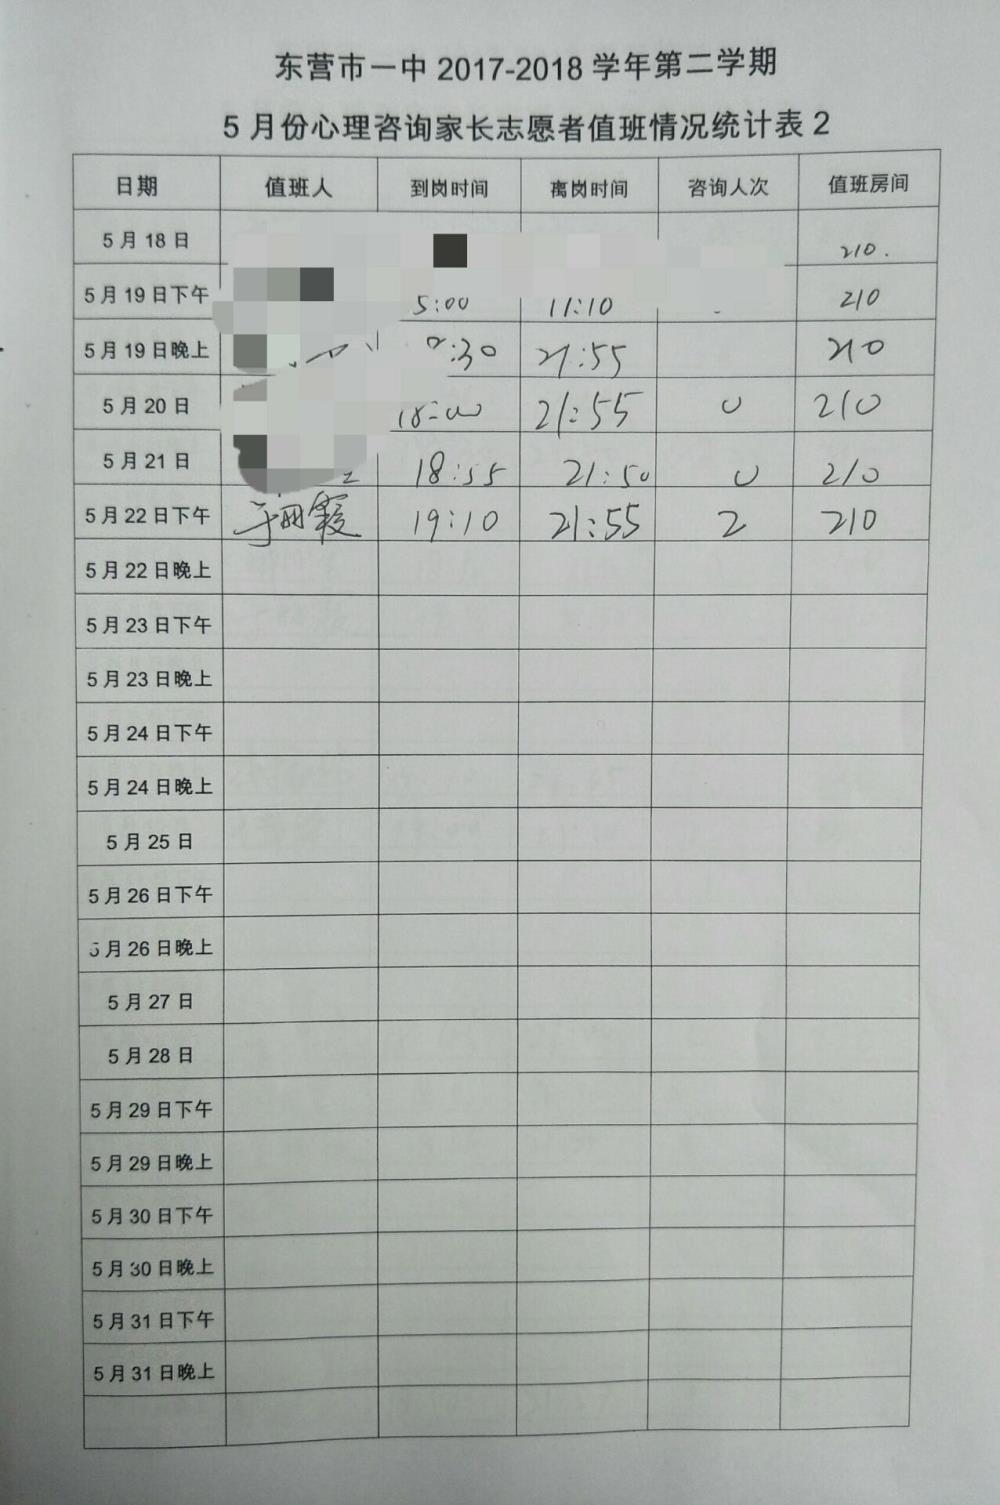 东营市一中 2017-2018 学年第二学期
5 月份心理咨询家长志愿者值班情况统计表 2
日期 值班人 到岗时间 离岗时间 咨询人次 值班房间
5 月 18 日 210.
5 月 19 日下午 5:00 11:10 210
5 月 19 日晚上 :30 21:55 210
5 月 20 日 18:00 21:55 0 210
5 月 21 日 18:55 21:50 0 210
5 月 22 日下午 于丽霞 19:10 21:55 2 210
5 月 22 日晚上
5 月 23 日下午
5 月 23 日晚上
5 月 24 日下午
5 月 24 日晚上
5 月 25 日
5 月 26 日下午
5 月 26 日晚上
5 月 27 日
5 月 28 日
5 月 29 日下午
5 月 29 日晚上
5 月 30 日下午
5 月 30 日晚上
5 月 31 日下午
5 月 31 日晚上